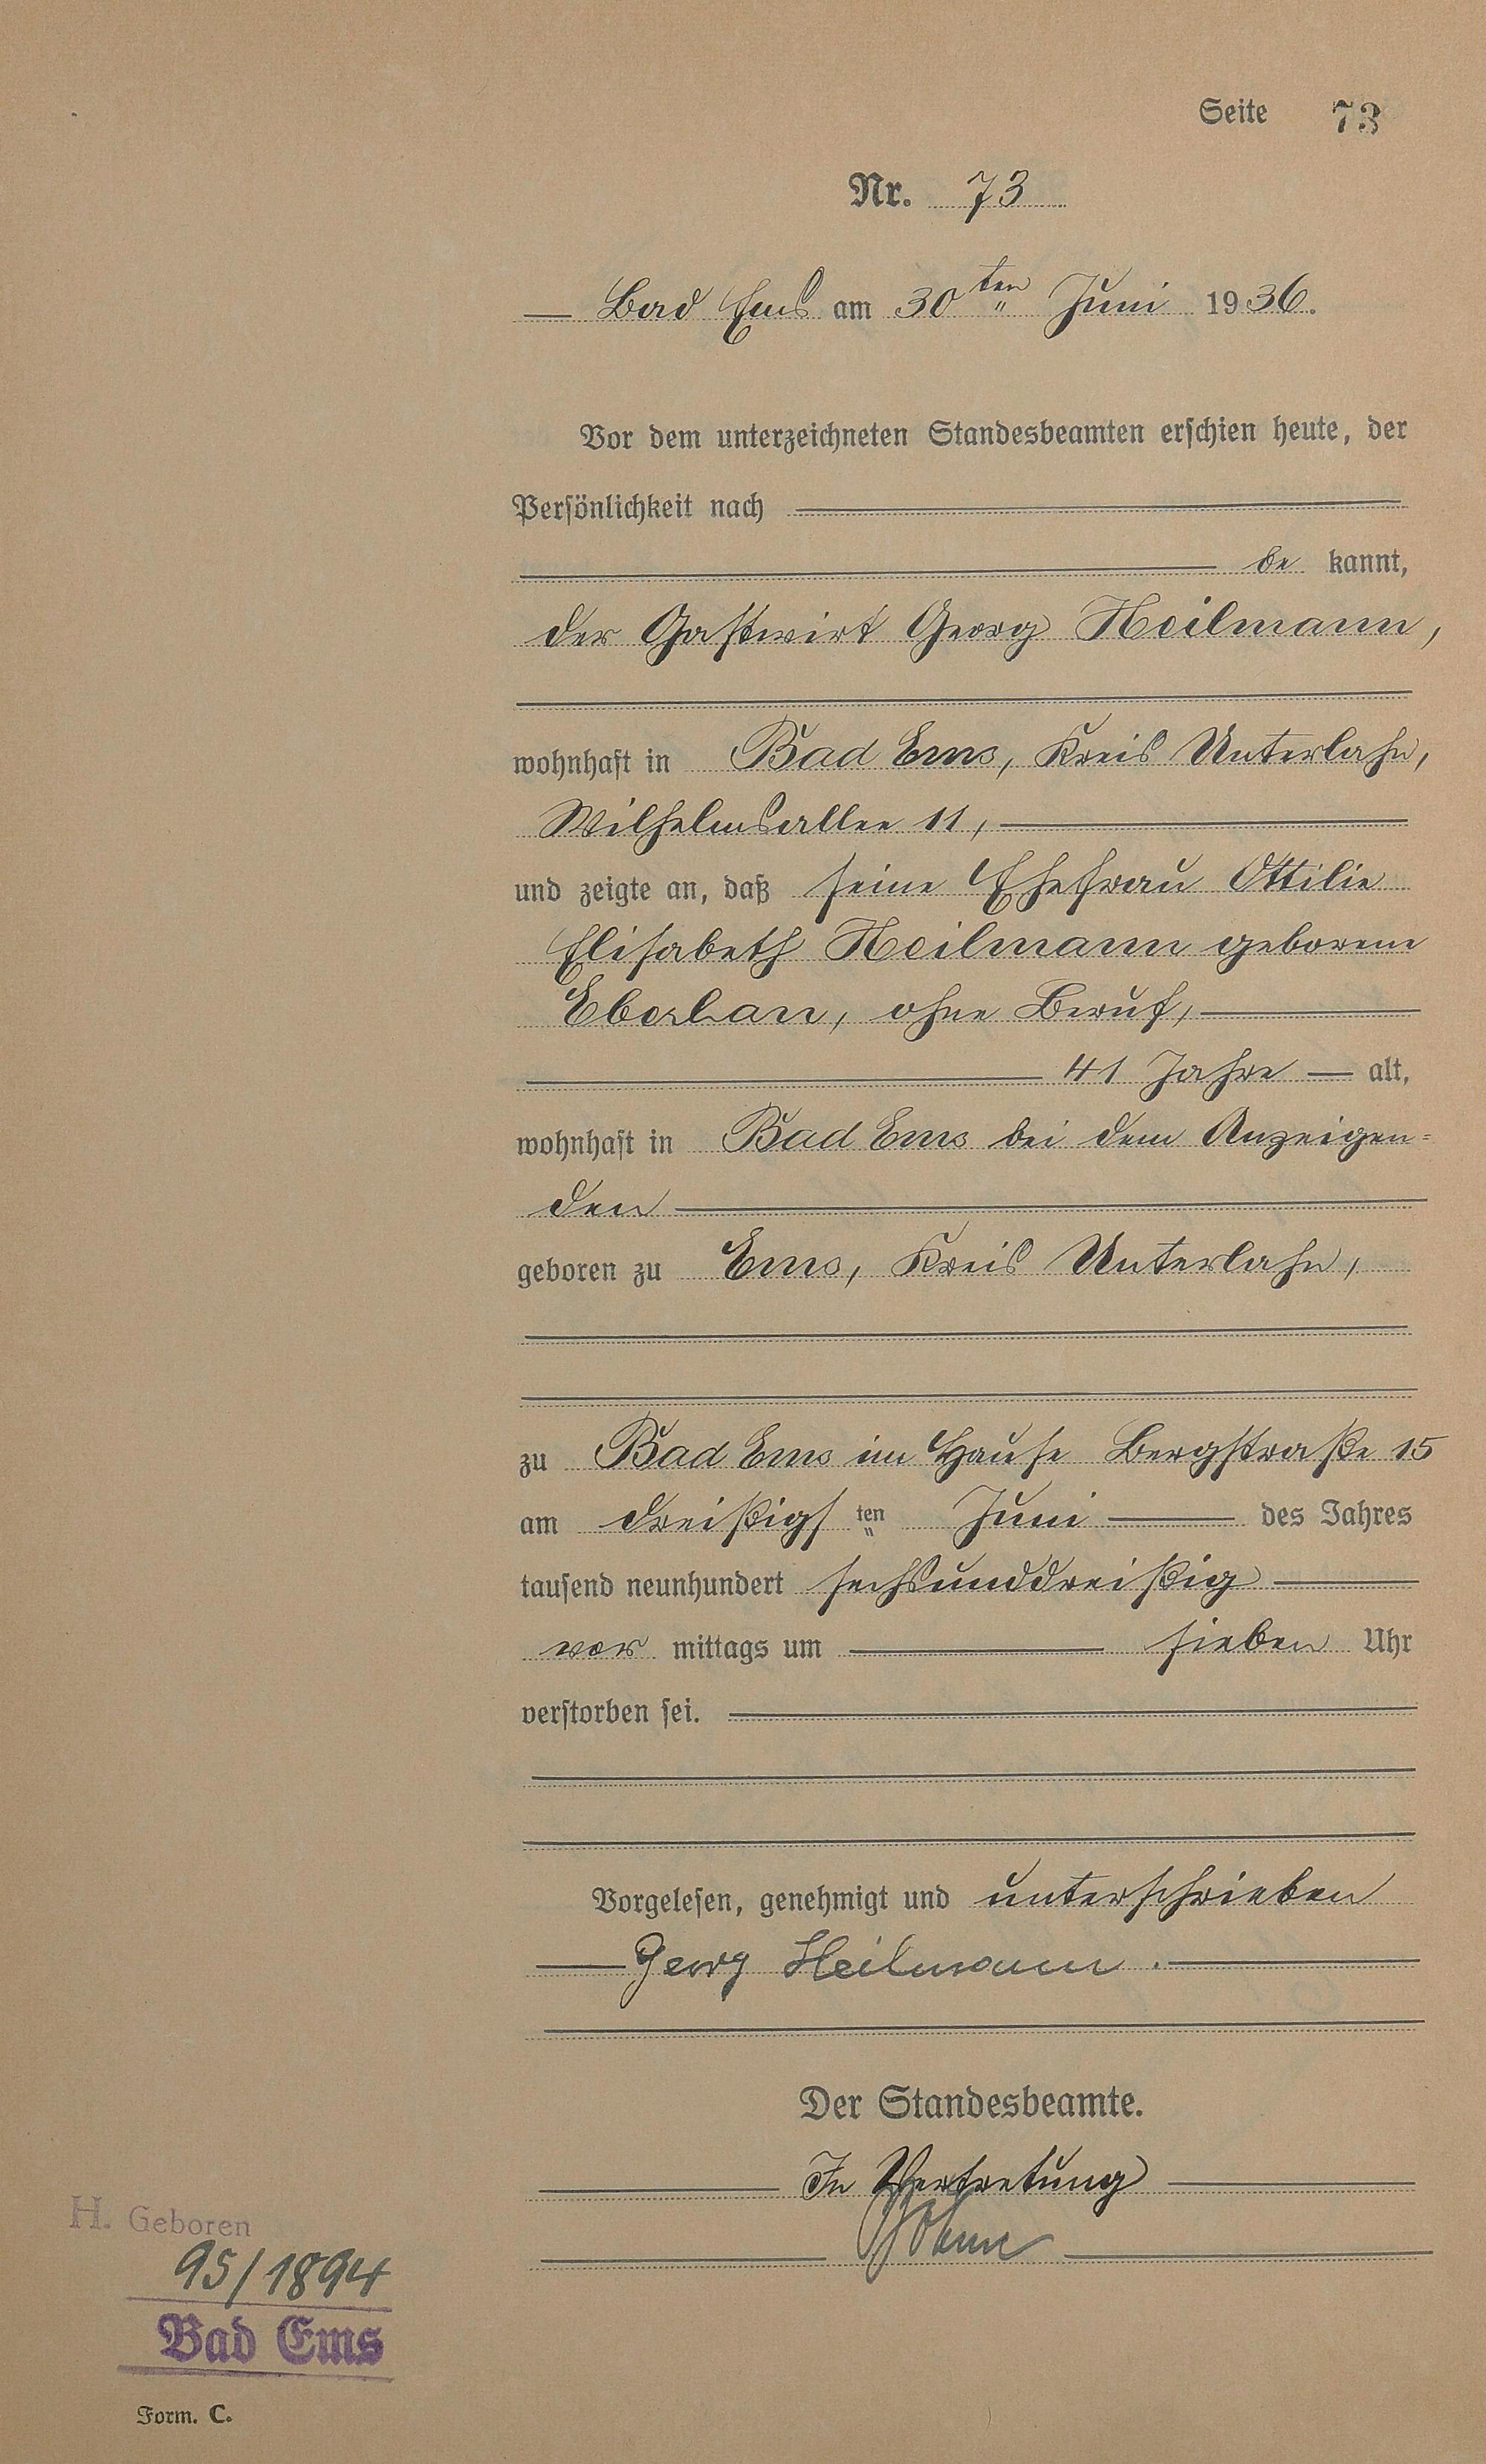 Seite 73
Nr. 73
Bad Ems am 30ten Juni 1936.
Vor dem unterzeichneten Standesbeamten erschien heute, der
Persönlichkeit nach
be kannt,
der Gastwirt Georg Heilmann,
wohnhaft in Bad Ems, Kreis Unterlahn,
Wilhelmsallee 11,
und zeigte an, daß seine Ehefrau Ottilie
Elisabeth Heilmann geborene
ohne Beruf,
41 Jahre alt,
wohnhaft in Bad Ems bei dem Anzeigen=
den
geboren zu Ems, Kreis Unterlahn,
zu Bad Ems im Hause Bergstraße 15
am dreißigs ten Juni des Jahres
tausend neunhundert sechsunddreißig
vor mittags um sieben Uhr
verstorben sei.
Vorgelesen, genehmigt und unterschrieben
Georg Heilmann.
Der Standesbeamte.
In Vertretung
H. Geboren
95/1894
Bad Ems
Form. C.